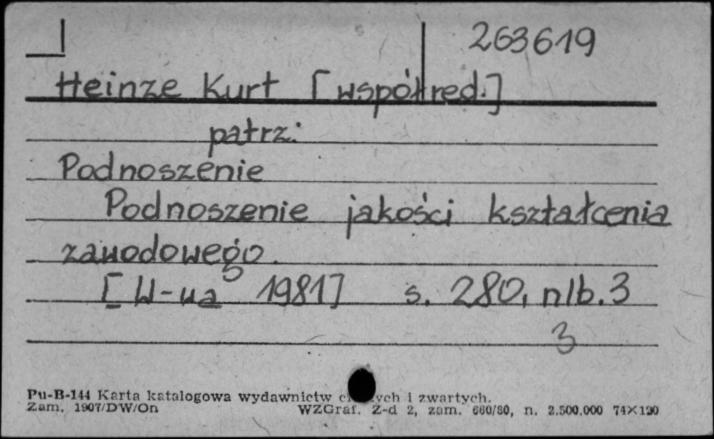 263619
Heinze Kurt [współred.]
patrz:
Podnoszenie
Podnoszenie jakości kształcenia
zawodowego.
[W-wa 1981] s. 280, nlb. 3
3
Pu-B-144 Karta katalogowa wydawnictw i zwartych.
Zam. 1907/DW/On WZGraf. Z-d 2, zam. 660/80, n. 2.500.000 74×120